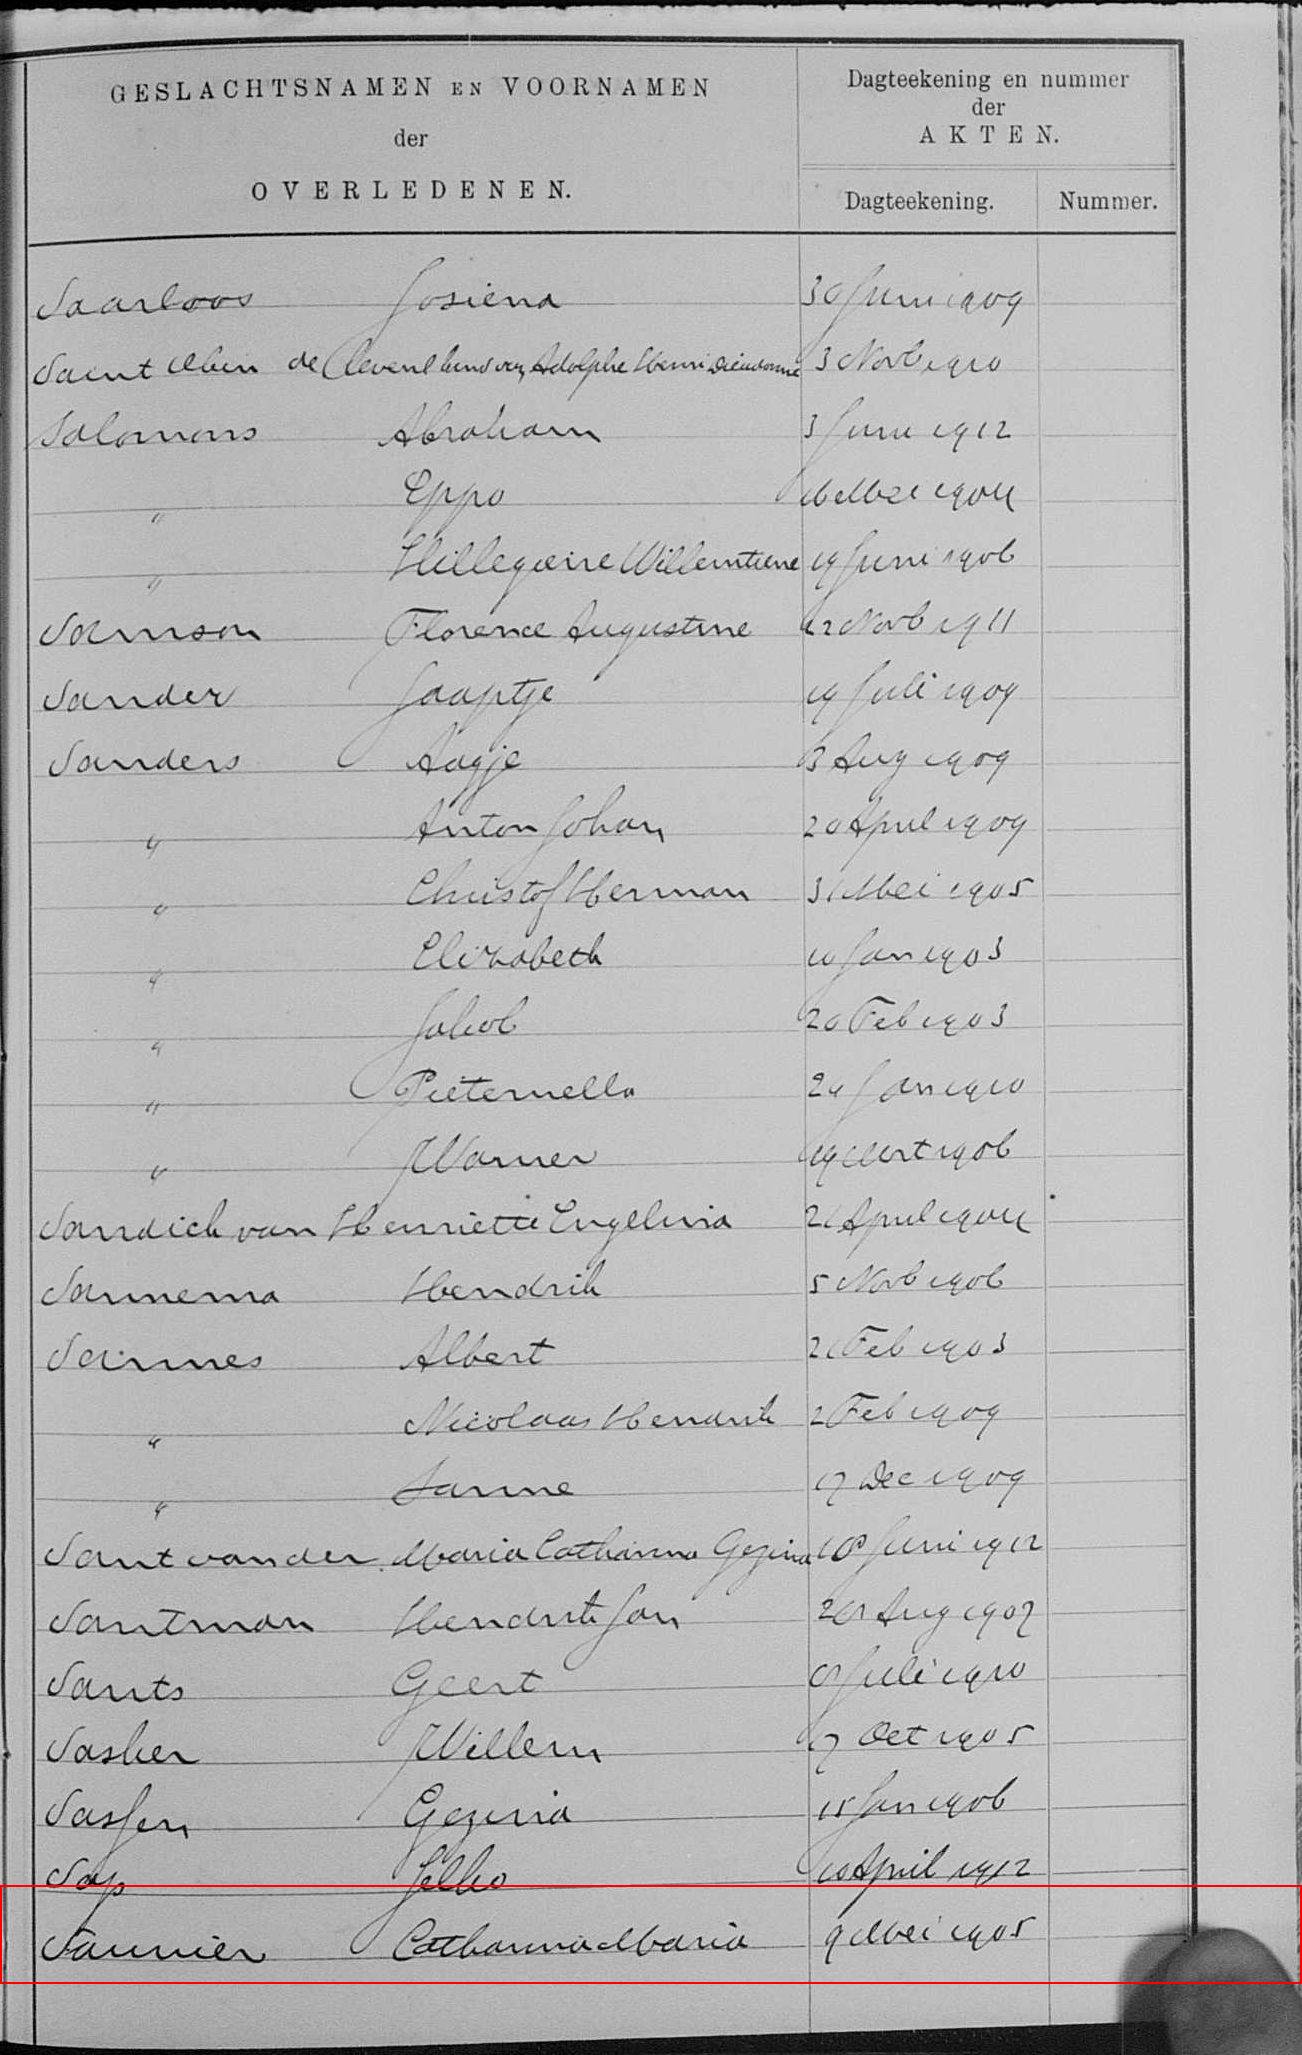 GESLACHTSNAMEN EN VOORNAMEN
der
OVERLEDENEN.
Dagteekening en nummer
der
AKTEN.
Dagteekening. Nummer.
Saarloos Josiena 30 Juni 1909
Saint Aluin de Adolphe Henri Dieudonné 3 Novb 1910
Salomons Abraham 3 Juni 1912
" Eppo 16 Mei 1904
" Hillegiene Willemtiene 19 Juni 1906
Samson Florence Augustine 22 Novb 1911
Sander Jaaptje 19 Juli 1909
Sanders Aagje 3 Aug 1909
" Anton Johan 20 April 1909
" Christof Herman 31 Mei 1905
" Elizabeth 10 Jan 1903
" Jakob 20 Feb 1903
" Pieternella 24 Jan 1910
" Warner 19 Mrt 1906
Sandick van Henriette Engelina 21 April 1904
Sannema Hendrik 5 Novb 1906
Sannes Albert 21 Feb 1903
" Nicolaas Hendrik 2 Feb 1909
" Sanne 17 Dec 1909
Sant van der Maria Catharina Gezina 18 Juni 1912
Santman Hendrik Jan 28 Aug 1907
Sants Geert 8 Juli 1910
Sasker Willem 7 Oct 1905
Sassen Gezina 15 Jan 1906
Sap Jelko 10 April 1912
Saunier Catharina Maria 9 Mei 1905